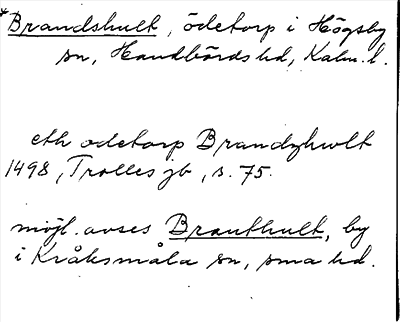 *Brandshult, ödetorp i Högsby
sn, Handbörds hd, Kalm. l.
eth odetorp Brandzhwlt
1498, Trolles jb, s. 75.
möjl. avses Branthult, by
i Kråksmåla sn, sma hd.